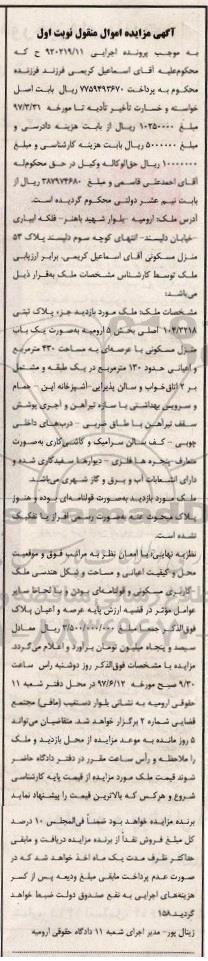 آگهی مزایده اموال منقول نوبت اول
به موجب پرونده اجرایی ۹۲۰۲۱۹/۱۱ ح که
محکوم‌علیه آقای اسماعیل کریمی فرزند فرزنده
محکوم به پرداخت ۷۷۵۹۴۹۳۶۷۰ ریال بابت اصل
خواسته و خسارت تأخیر تأدیه تا مورخه ۹۷/۳/۳۱
مبلغ ۱۰۲۵۰۰۰۰ ریال از بابت هزینه دادرسی و
مبلغ ۵۰۰۰۰۰۰ ریال بابت هزینه کارشناسی و مبلغ
۱۰۰۰۰۰۰۰ ریال حق‌الوکاله وکیل در حق محکوم‌له
آقای احمدعلی قاسمی و مبلغ ۳۸۷۹۷۴۶۸۰ ریال از
بابت نیم عشر دولتی محکوم گردیده است.
آدرس ملک: ارومیه -بلوار شهید باهنر- فلکه آبیاری
-خیابان دلپسند- انتهای کوچه سوم دلپسند پلاک ۵۳
منزل مسکونی آقای اسماعیل کریمی. برابر ارزیابی
ملک توسط کارشناس مشخصات ملک به‌قرار ذیل
می‌باشد:
مشخصات ملک: ملک مورد بازدید جزء پلاک ثبتی
۱۰۳/۳۲۱۸ اصلی بخش ۵ ارومیه به‌صورت یک باب
منزل مسکونی با عرصه‌ای به مساحت ۴۳۰ مترمربع
و اعیانی حدود ۱۳۰ مترمربع در یک طبقه و مشتمل
بر ۲ اتاق‌خواب و سالن پذیرایی-آشپزخانه اپن - حمام
و سرویس بهداشتی با سازه تیرآهن و آجری پوشش
سقف تیرآهن با طاق ضربی - درب‌های داخلی
چوبی - کف سالن سرامیک و کاشی‌کاری به‌صورت
متعارف- پنجره‌ها فلزی - دیوارها سفیدکاری شده و
دارای انشعابات آب و برق و گاز شهری می‌باشد.
ملک مورد بازدید به‌صورت قولنامه‌ای بوده و هنوز
پلاک مبحوث عنه به‌صورت رسمی افراز یا تفکیک
نشده است.
نظریه نهایی: با امعان نظر به مراتب فوق و موقعیت
محل و کیفیت اعیانی و مساحت و شکل هندسی ملک
- کاربری مسکونی و قولنامه‌ای بودن و با لحاظ سایر
عوامل مؤثر در قضیه ارزش پایه عرصه و اعیان پلاک
فوق‌الذکر جمعاً مبلغ ۳/۵۰۰/۰۰۰/۰۰۰ ریال معادل
سیصد و پنجاه میلیون تومان برآورد و اعلام می‌گردد.
مزایده با مشخصات فوق‌الذکر روز دوشنبه راس ساعت
۹/۳۰ صبح مورخه ۹۷/۶/۱۲ در محل دفتر شعبه ۱۱
حقوقی ارومیه به نشانی بلوار دستغیب (مافی) مجتمع
قضایی شماره ۲ برگزار خواهد شد. متقاضیان می‌تواند
۵ روز مانده به موعد مزایده از محل بازدید و ملک
را ملاحظه و رأس ساعت مقرر در دفتر دادگاه حاضر
شوند قیمت ملک مورد مزایده از قیمت پایه کارشناسی
شروع و هرکس که بالاترین قیمت را پیشنهاد نماید
برنده مزایده خواهد بود ضمناً فی‌المجلس ۱۰ درصد
کل مبلغ فروش نقداً از برنده مزایده دریافت و مابقی
حداکثر ظرف مدت یک ماه اخذ خواهد شد که در
صورت عدم پرداخت مابقی مبلغ ودیعه پس از کسر
هزینه‌های اجرایی به نفع صندوق دولت ضبط خواهد
گردید.۱۵۸
زینال پور- مدیر اجرای شعبه ۱۱ دادگاه حقوقی ارومیه